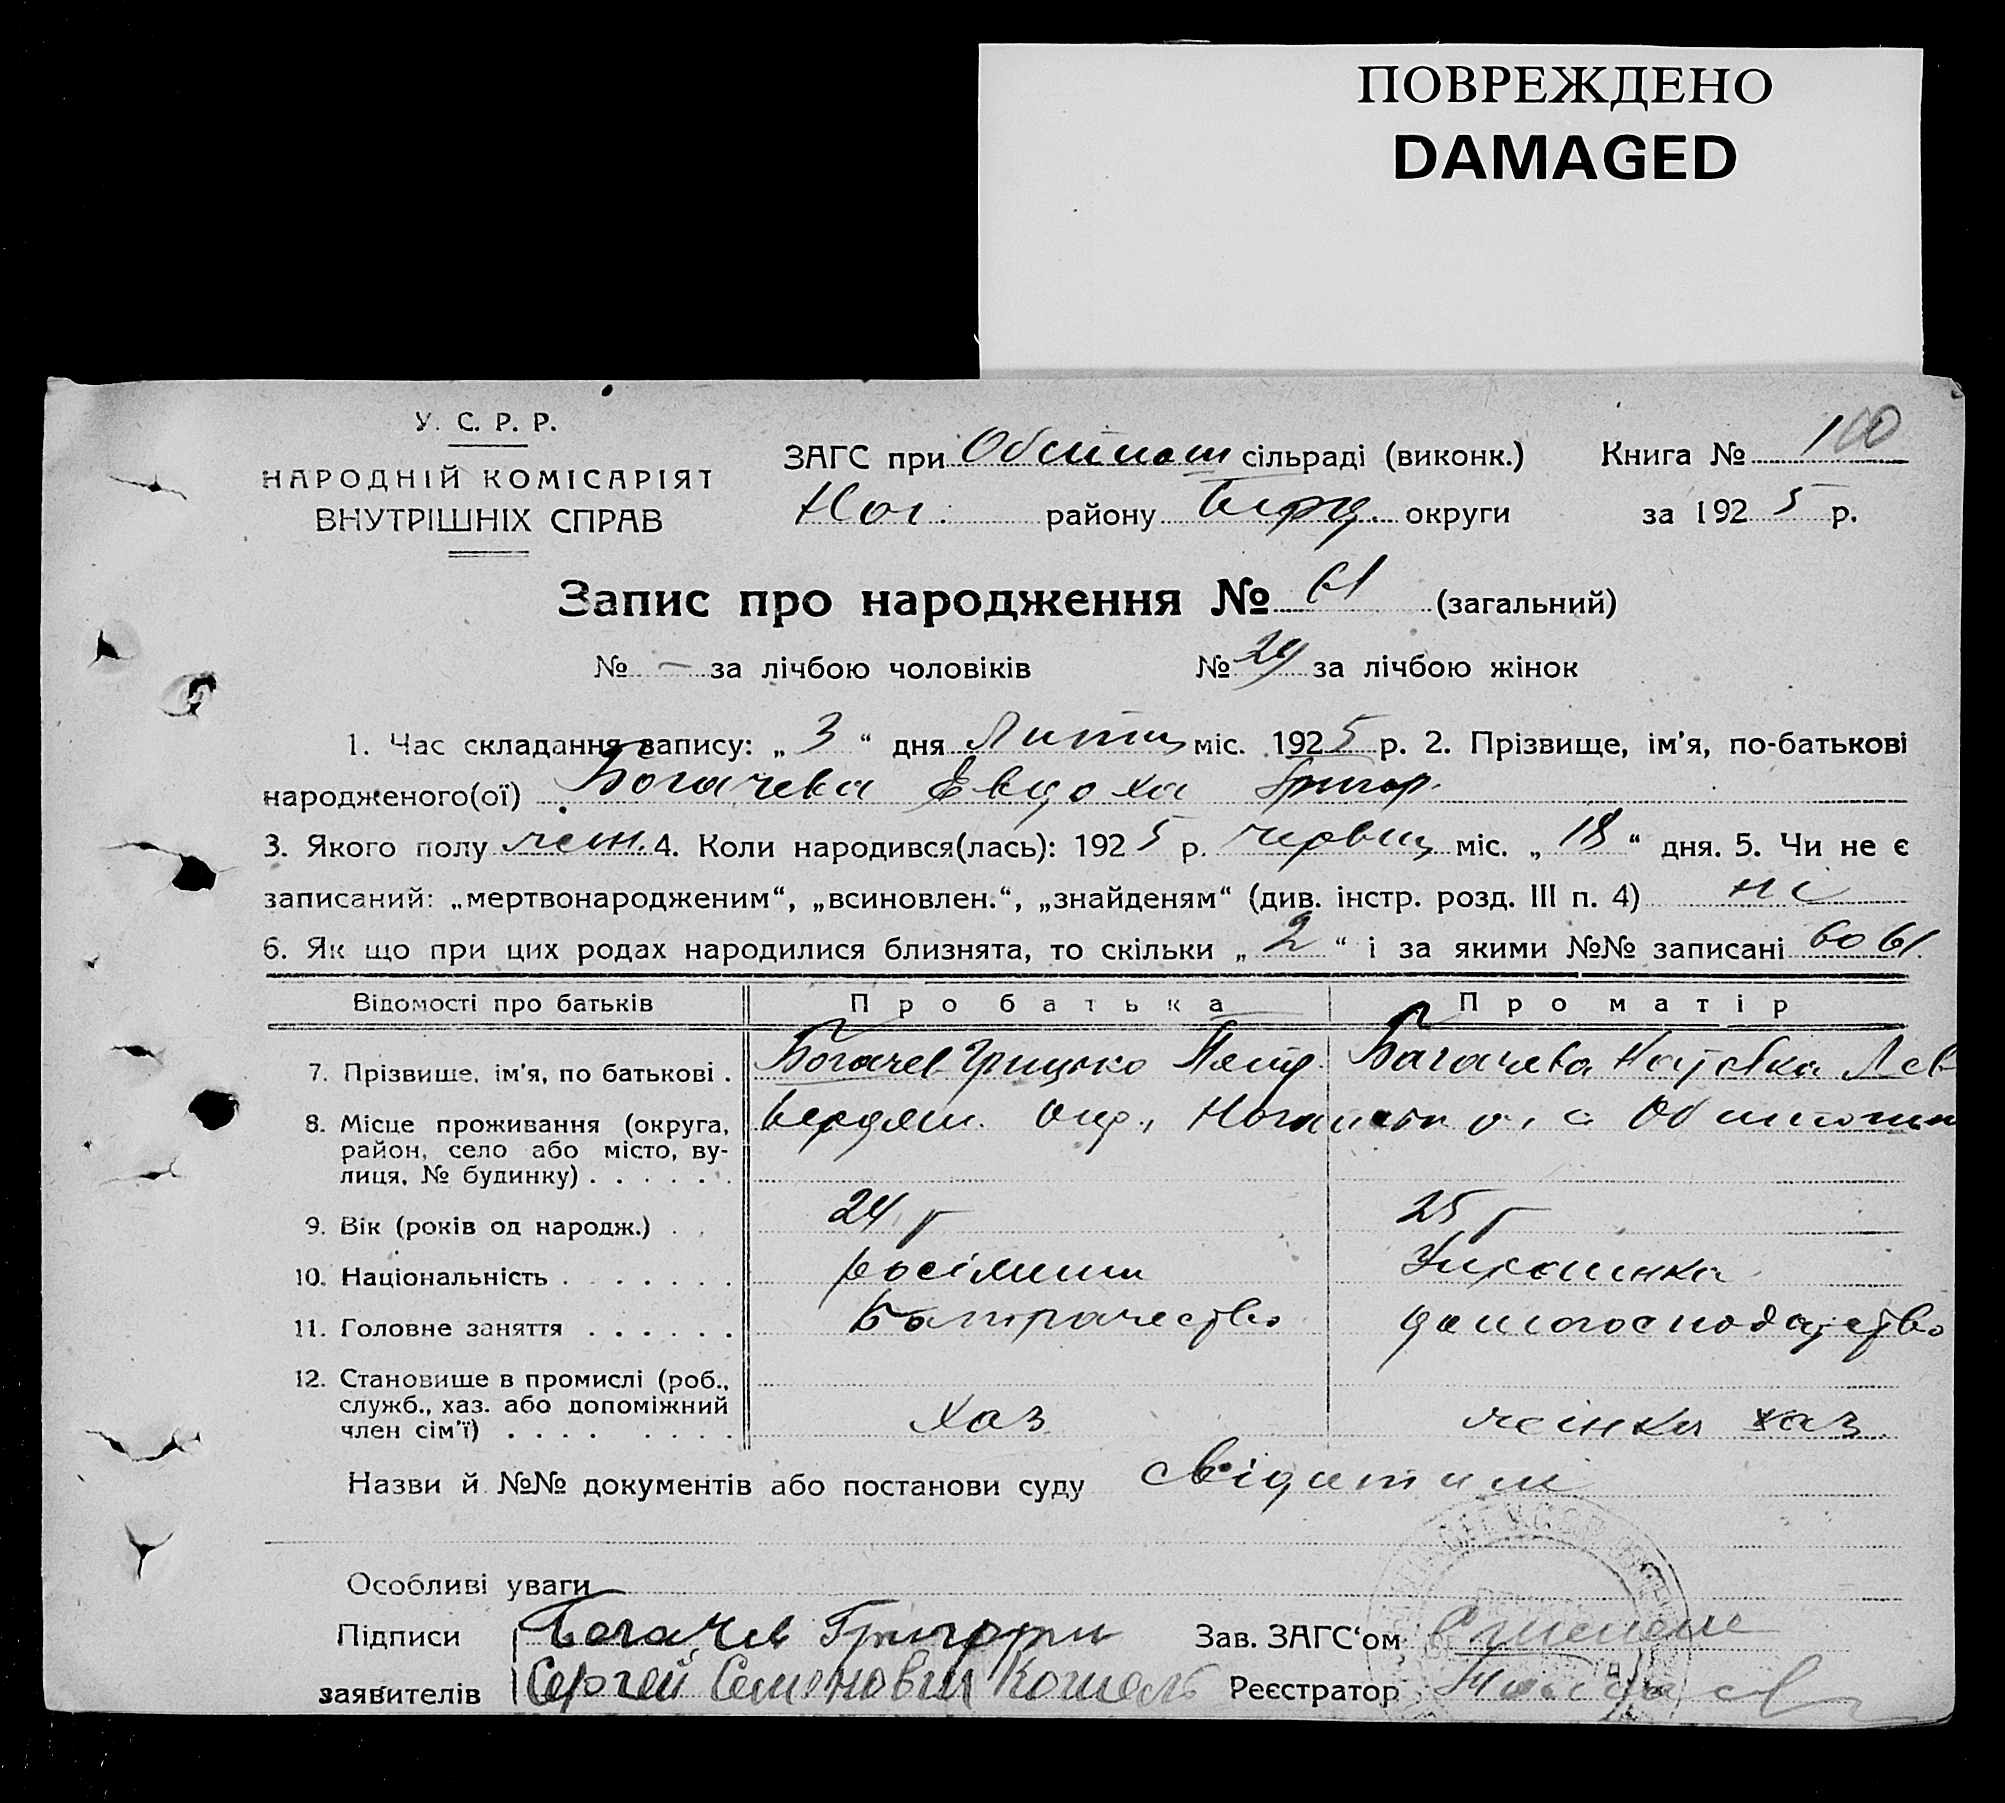 ПОВРЕЖДЕНО
DAMAGED
У. С. Р. Р.
НАРОДНІЙ КОМІСАРІЯТ
ВНУТРІШНІХ СПРАВ
ЗАГС при сільраді (виконк.) Книга № 100
Ног. району Берд. округи за 1925 р.
Запис про народження № 61 (загальний)
№ – за лічбою чоловіків № 29 за лічбою жінок
1. Час складання запису: „ 3 “ дня міс. 1925 р. 2. Прізвище, ім'я, по-батькові
народженого(ої) Богачева Евдоха Григор.
3. Якого полу жен. 4. Коли народився(лась): 1925 р. червец міс. „ 18 “ дня. 5. Чи не є
записаний: „мертвонародженим“, „всиновлен.“, „знайденям“ (див. інстр. розд. III п. 4) ні
6. Як що при цих родах народилися близнята, то скільки „ 2 “ і за якими №№ записані 60 61.
Відомості про батьків Про батька Про матір
7. Прізвише, ім'я, по батькові . Богачев Грицько Петр. Багачева Лев
8. Місце проживання (округа, Бердян. окр., с
район, село або місто, ву-
лиця, № будинку) . . . . . .
9. Вік (років од народж.) . . 24 г 25 г
10. Національність . . . . . . . росіянин Украинка
11. Головне заняття . . . . . . Батрачество домогосподарство
12. Становише в промислі (роб.,
служб., хаз. або допоміжний
член сім'ї) . . . . . . . . хаз жінка хаз.
Назви й №№ документів або постанови суду
Особливі уваги
Підписи Богачев Григорий Зав. ЗАГС‘ом
заявителів Сергей Семенович Кошель Реєстратор